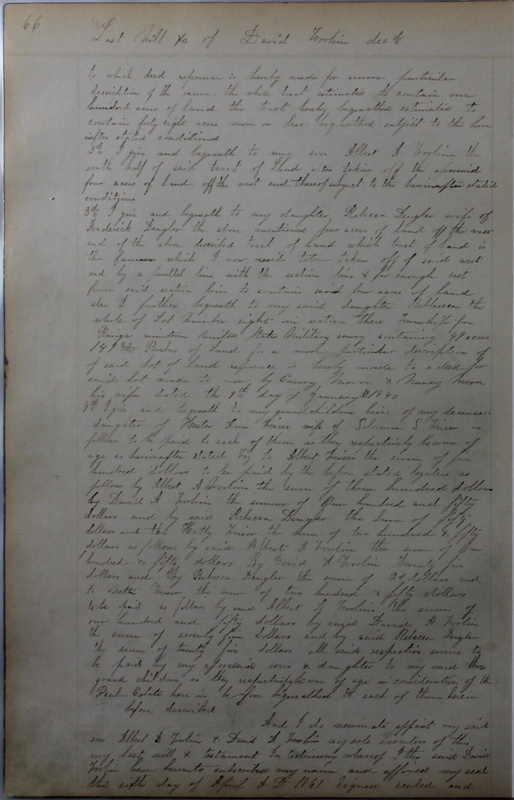 66
Last Will &c of David dec'd
to which deed reference is hereby made for more particular
description of the same. the whole tract estimated to contain one
hundred acres of land the tract hereby bequeathed estimated to
contain forty eight acres more or less bequeathed subject to the herein
after stated conditions
I give and bequeath to my son Albert the
south half of said tract of land after taking off the aforesaid
four acres of land off the west end thereof subject to the hereinafter stated
conditions
3rd I give and bequeath to my daughter Rebecca Dengler wife of
Frederick Dengler the above mentioned four acres of land off the west
end of the above described tract of land which tract of land is
the which I now reside to be taken off of said west
end by a parallel line with the section line & far enough west
from said section line to contain said four acres of land
also I further bequeath to my said daughter Rebecca the
whole of Lot Number eight in section three Township four
Range nineteen United States Military survey containing 49 acres
149 Poles of land for a more particular description of
of said lot of land reference is hereby made to a deed for
said lot made to me by Emory Moore & Nancy Moore
his wife dated the 8th day of January AD 1840
4th I give and bequeath to my grand children heirs of my deceased
daughter Hester Ann wife of Solomon S as
follows to be paid to each of them as they respectively become of
age as hereinafter stated Viz to Albert the sum of five
hundred dollars to be paid by the before stated legatees as
follows by Albert the sum of three hundred dollars
by David A the sum of One hundred and fifty
dollars and by said Rebecca Dengler the sum of fifty
dollars and to the sum of two hundred & fifty
dollars as follows by said Albert the sum of one
hundred & fifty dollars By David A Seventy five
dollars and By Rebecca Dengler the sum of 25 dollars and
to the sum of two hundred & fifty dollars
to be paid as follows by said Albert the sum of
one hundred and fifty dollars by said David A
the sum of seventy five Dollars and by said Rebecca Dengler
the sum of twenty five dollars all said respective sums to
be paid by my aforesaid sons & daughter to my said three
grand children as they respectively come of age in consideration of the
Real Estate herein before bequeathed to each of them herein
before described
And I do nominate appoint my said
son Albert & David A my sole executors of this
my last will & testament In testimony whereof I the said David
have hereunto subscribed my name and affixed my seal
this sixth day of April A.D. 1861 Signed sealed and